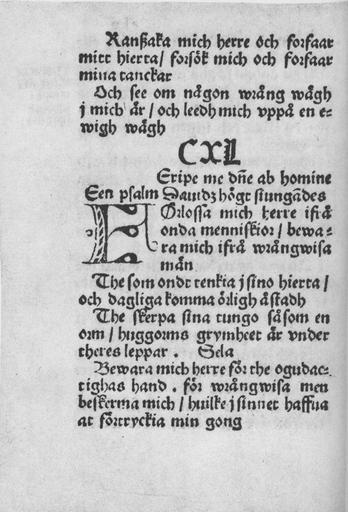 Ranßaka mich herre och forfaar
mitt hierta/ forsök mich och forfaar
mina tanckar
Och see om någon wrång wägh
j mich är / och leedh mich vppå en e-
wigh wägh
CXL
Eripe me dñe ab homine
Een psalm Dauidz högt siungādes
FÖrlossa mich herre ifrå
onda menniskior / bewa-
ra mich ifrå wrångwisa
män
The som ondt tenkia j sino hierta /
och dagliga komma örligh åstadh
The skerpa sina tungo såsom en
orm / huggorms grymheet är vnder
theres leppar . Sela
Bewara mich herre för the ogudac-
tighas hand . för wrångwisa men
beskerma mich / huilke j sinnet haffua
at förtryckia min gong